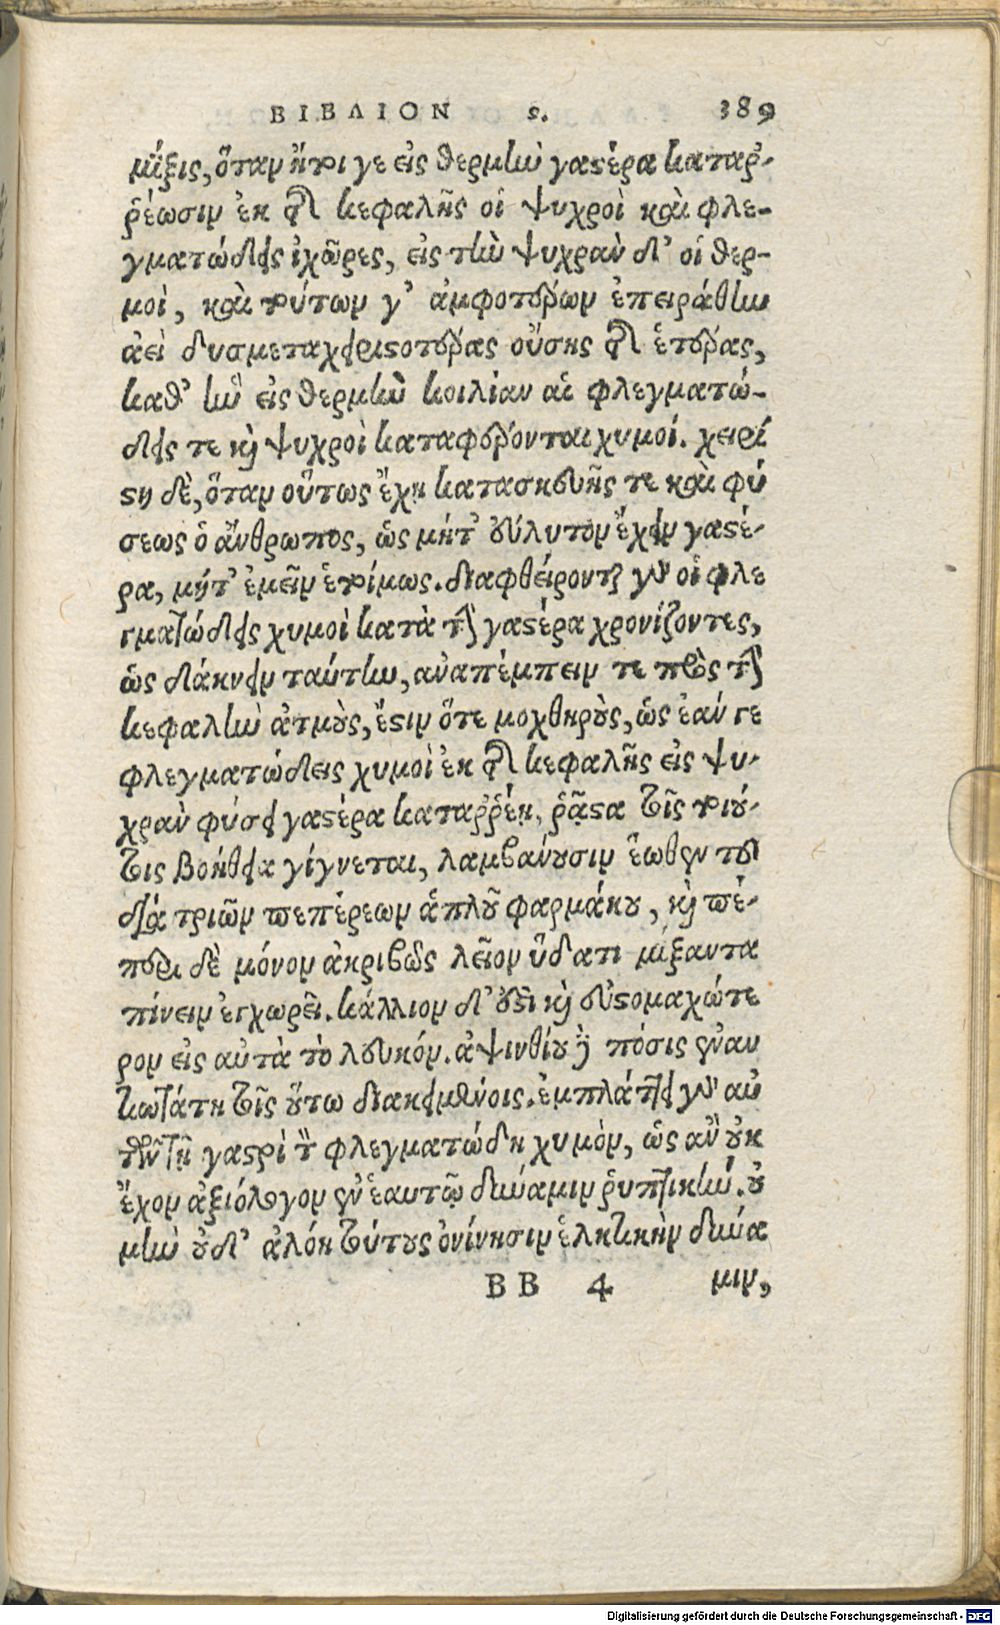 ΒΙΒΛΙΟΝ ϛ. 389
μίξις, ὅταν ἤτοι γε εἰς θερμὴν γαστέρα καταῤ-
ῥέωσιν ἐκ τῆς κεφαλῆς οἱ ψυχροὶ καὶ φλε-
γματώδεις ἰχῶρες, εἰς τὴν ψυχρὰν δ' οἱ θερ-
μοὶ, καὶ τούτων γ' ἀμφοτέρων ἐπειράθην
ἀεὶ δυσμεταχειριστοτέρας οὔσης τῆς ἑτέρας,
καθ' ἣν εἰς θερμὴν κοιλίαν αἱ φλεγματώ-
δεις τε καὶ ψυχροὶ καταφέρονται χυμοί. χειρί
στη δὲ, ὅταν οὕτως ἔχῃ κατασκευῆς τε καὶ φύ
σεως ὁ ἄνθρωπος, ὡς μήτ' εὔλυτον ἔχειν γαστέ-
ρα, μήτ' ἐμεῖν ἑτοίμως. διαφθείρονται γὰρ οἱ φλε
γματώδεις χυμοὶ κατὰ τὴν γαστέρα χρονίζοντες,
ὡς δάκνειν ταύτην, ἀναπέμπειν τε πρὸς τὴν
κεφαλὴν ἀτμοὺς, ἔστιν ὅτε μοχθηροὺς, ὡς ἐάν γε
φλεγματώδεις χυμοὶ ἐκ τῆς κεφαλῆς εἰς ψυ-
χρὰν φύσει γαστέρα καταῤῥέῃ, ῥᾷστα τοῖς τοιού-
τοις βοήθεια γίγνεται, λαμβάνουσιν ἕωθεν τοῦ
διὰ τριῶν πεπέρεων ἁπλοῦ φαρμάκου, καὶ πέ-
περι δὲ μόνον ἀκριβῶς λεῖον ὕδατι μίξαντα
πίνειν ἐγχωρεῖ. κάλλιον δ' οὖν καὶ εὐστομαχώτε
ρον εἰς αὐτὰ τὸ λευκόν. ἀψινθίου δὲ πόσις ἐναν
τιωτάτη τοῖς οὕτω διακειμένοις. ἐμπλάττει γὰρ αὐ
τῶν τῇ γαστρὶ τὸν φλεγματώδη χυμὸν, ὡς ἂν οὐκ
ἔχον ἀξιόλογον ἐν ἑαυτῷ δύναμιν ῥυπτικήν. οὐ
μὴν οὐδ' ἀλόη τούτους ὀνίνησιν ἑλκτικὴν δύνα
ΒΒ 4 μιν,
Digitalisierung gefördert durch die Deutsche Forschungsgemeinschaft - DFG